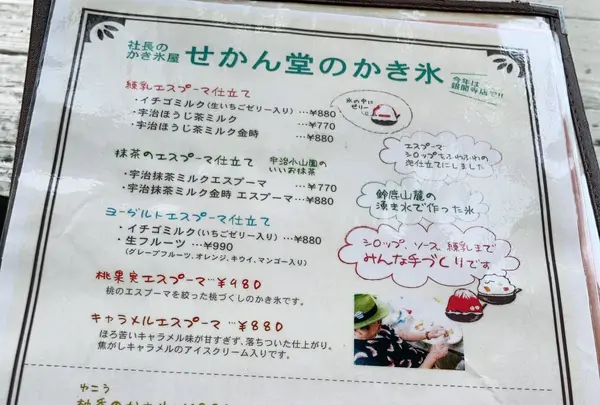 社長の
かき氷屋
せかん堂のかき氷
今年は
銀閣寺店で!!
練乳エスプーマ仕立て
・イチゴミルク(生いちごゼリー入り) …¥880
・宇治ほうじ茶ミルク …¥770
・宇治ほうじ茶ミルク金時 …¥880
氷の中に
ゼリー
エスプーマ
シロップをふわふわの
泡仕立てにしました
抹茶のエスプーマ仕立て
宇治小山園の
いいお抹茶
・宇治抹茶ミルクエスプーマ …¥770
・宇治抹茶ミルク金時 エスプーマ …¥880
鈴鹿山麓の
湧き水で作った氷
ヨーグルトエスプーマ仕立て
・イチゴミルク(いちごゼリー入り) …¥880
・生フルーツ …¥990
(グレープフルーツ、オレンジ、キウイ、マンゴー入り)
シロップ、ソース、練乳まで
みんな手づくりです
桃果実エスプーマ…¥980
桃のエスプーマを絞った桃づくしのかき氷です。
キャラメルエスプーマ …¥880
ほろ苦いキャラメル味が甘すぎず、落ちついた仕上がり。
焦がしキャラメルのアイスクリーム入りです。
ゆこう